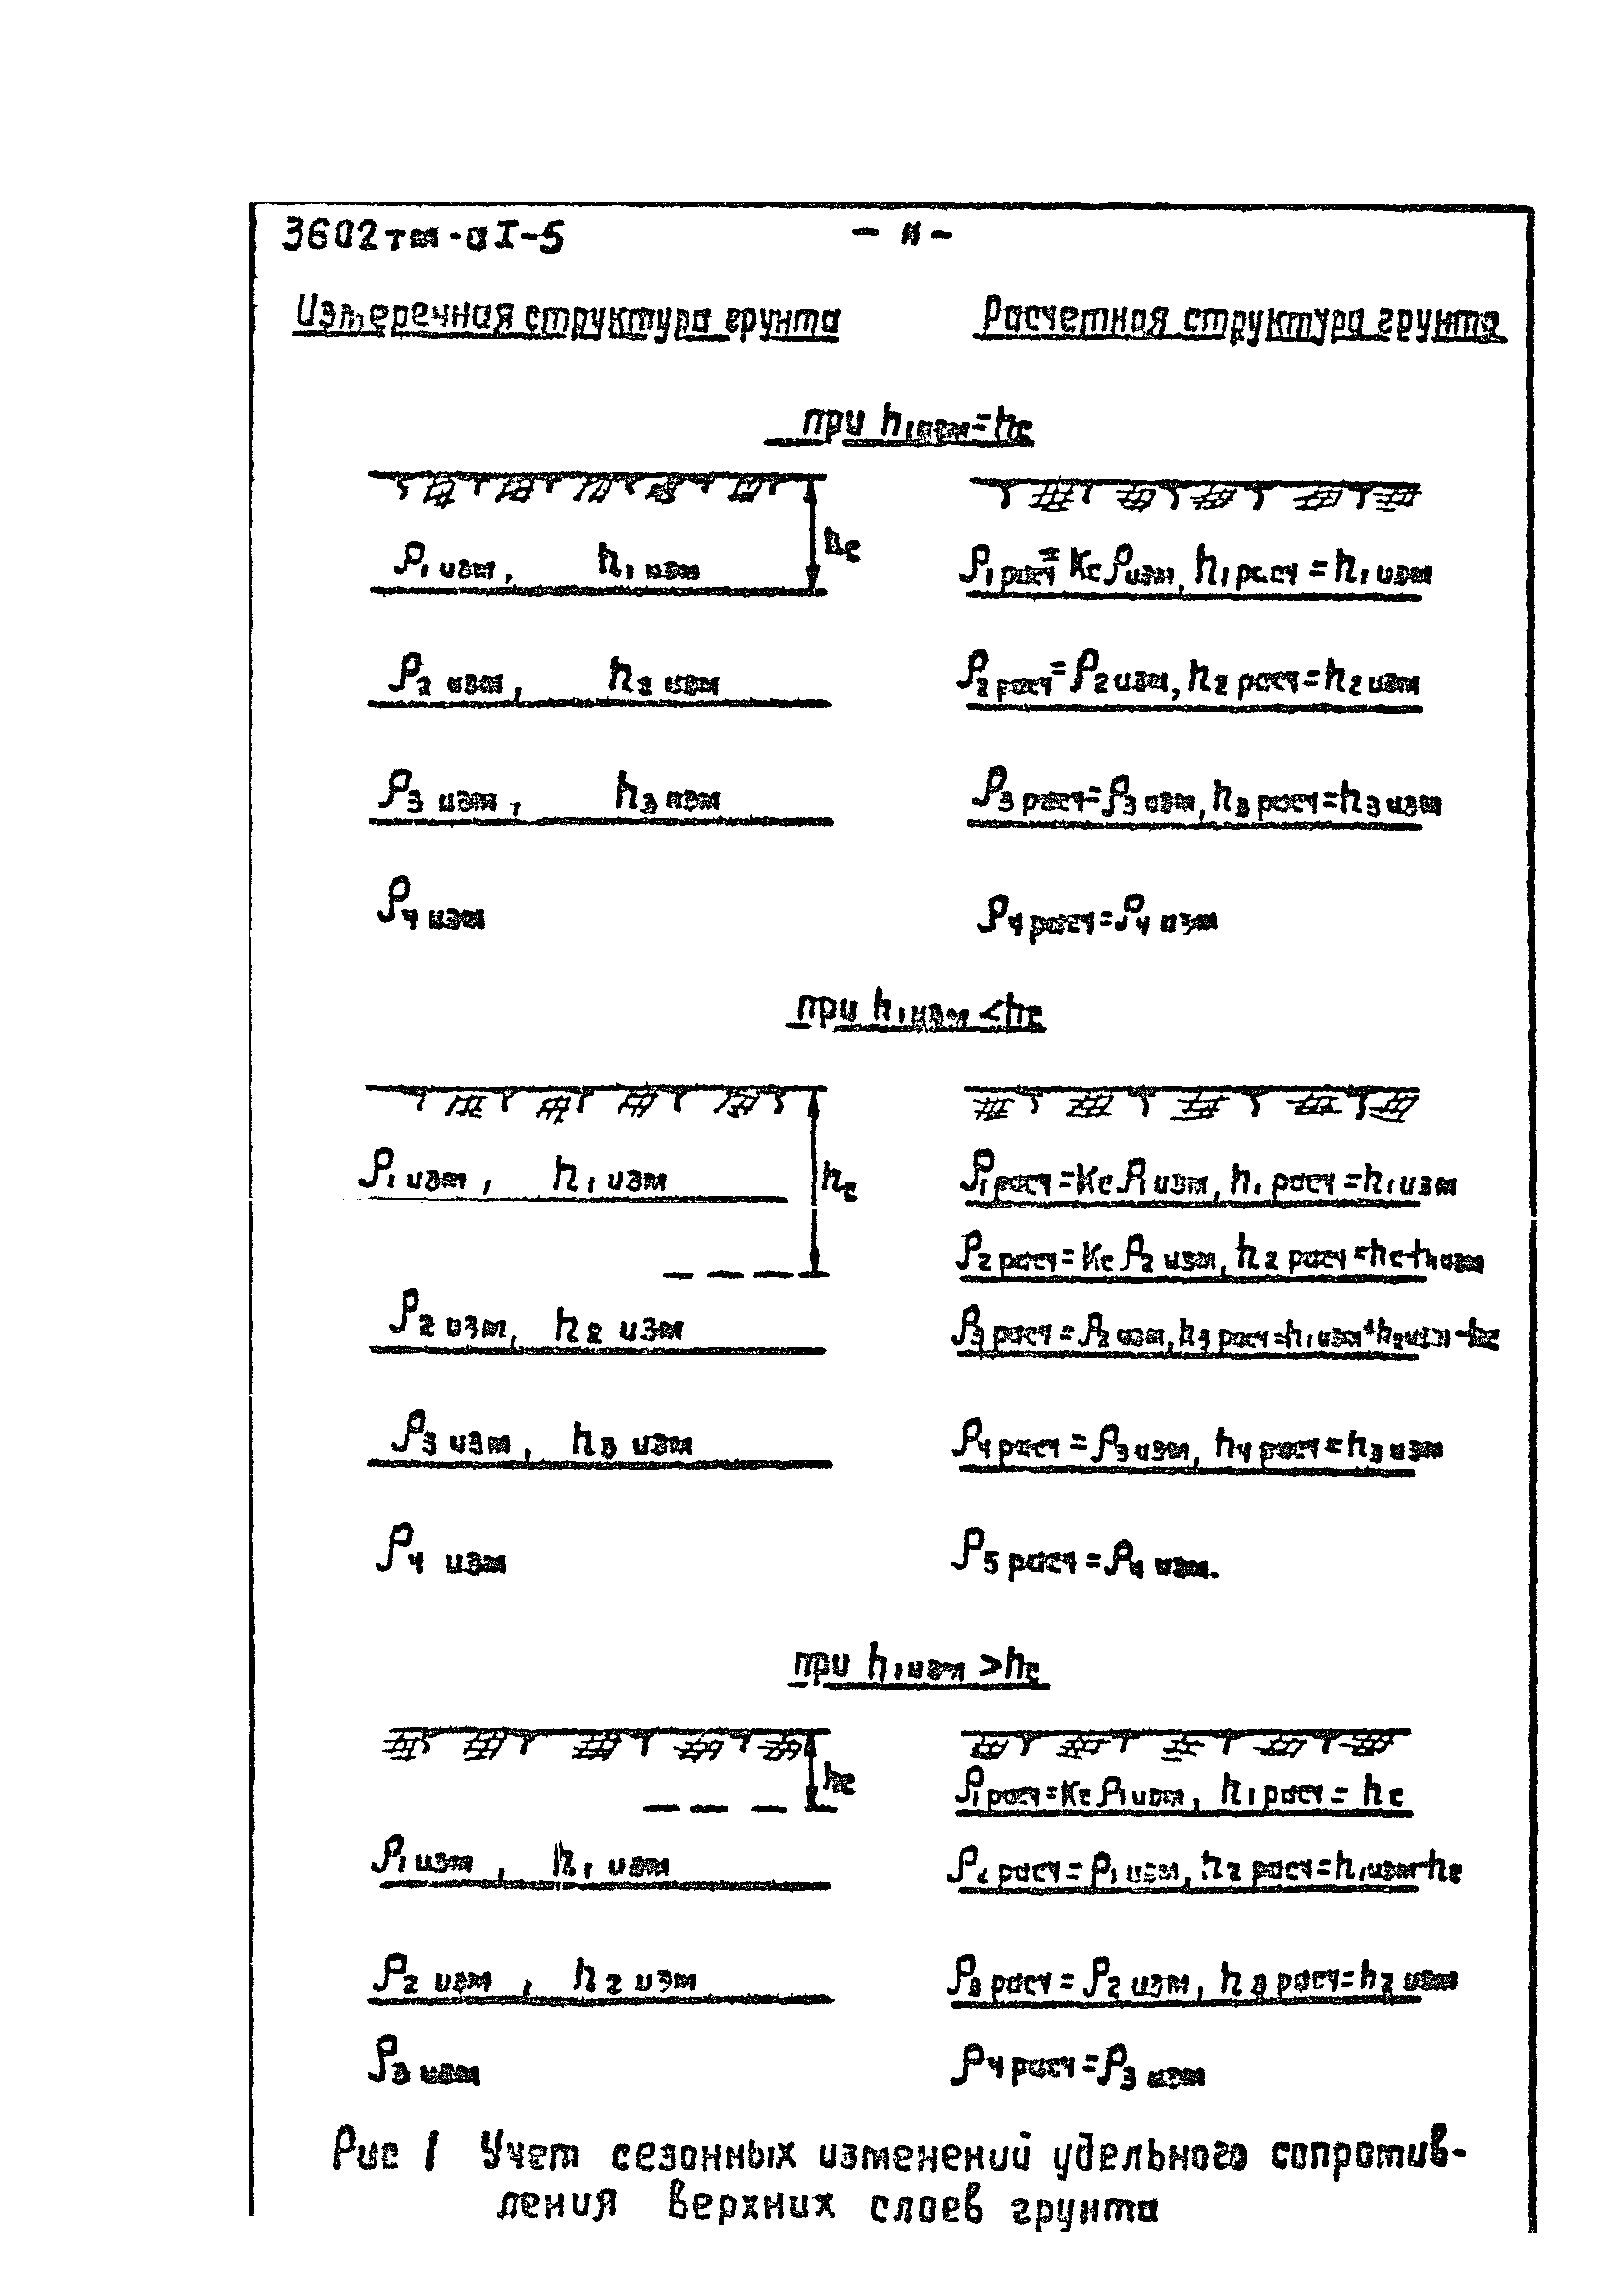 3602тм-аI-5 - 11 -
Измеречная структура грунта Расчетная структура грунта
при h1изм=hc
hc
ρ1 изм, h1 изм ρ1 расч = Kc ρизм, h1 расч = h1 изм
ρ2 изм, h2 изм ρ2 расч = ρ2 изм, h2 расч = h2 изм
ρ3 изм, h3 изм ρ3 расч = ρ3 изм, h3 расч = h3 изм
ρ4 изм ρ4 расч = ρ4 изм
при h1изм <hc
ρ1 изм, h1 изм hc ρ1 расч = Kc ρ1 изм, h1 расч = h1 изм
ρ2 расч = Kc ρ2 изм, h2 расч = hc-h1изм
ρ2 изм, h2 изм ρ3 расч = ρ2 изм, h3 расч = h1 изм+h2изм-hc
ρ3 изм, h3 изм ρ4 расч = ρ3 изм, h4 расч = h3 изм
ρ4 изм ρ5 расч = ρ4 изм.
при h1изм >hc
hc ρ1 расч = Kc ρ1изм, h1 расч = hc
ρ1 изм, h1 изм ρ2 расч = ρ1 изм, h2 расч = h1изм-hc
ρ2 изм, h2 изм ρ3 расч = ρ2 изм, h3 расч = h2 изм
ρ3 изм ρ4 расч = ρ3 изм
Рис 1 Учет сезонных изменений удельного сопротив-
ления верхних слоев грунта